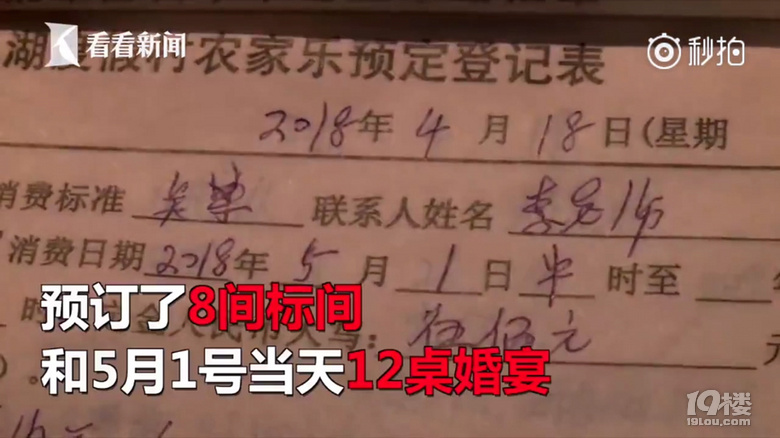 看看新闻 秒拍
湖度假村农家乐预定登记表
2018年4月18日(星期
消费标准 联系人姓名 李老师
消费日期2018年5月1日中 时至
预订了8间标间
时 金人民币大写: 伍佰元 元
和5月1号当天12桌婚宴
)。
19楼
19lou.com